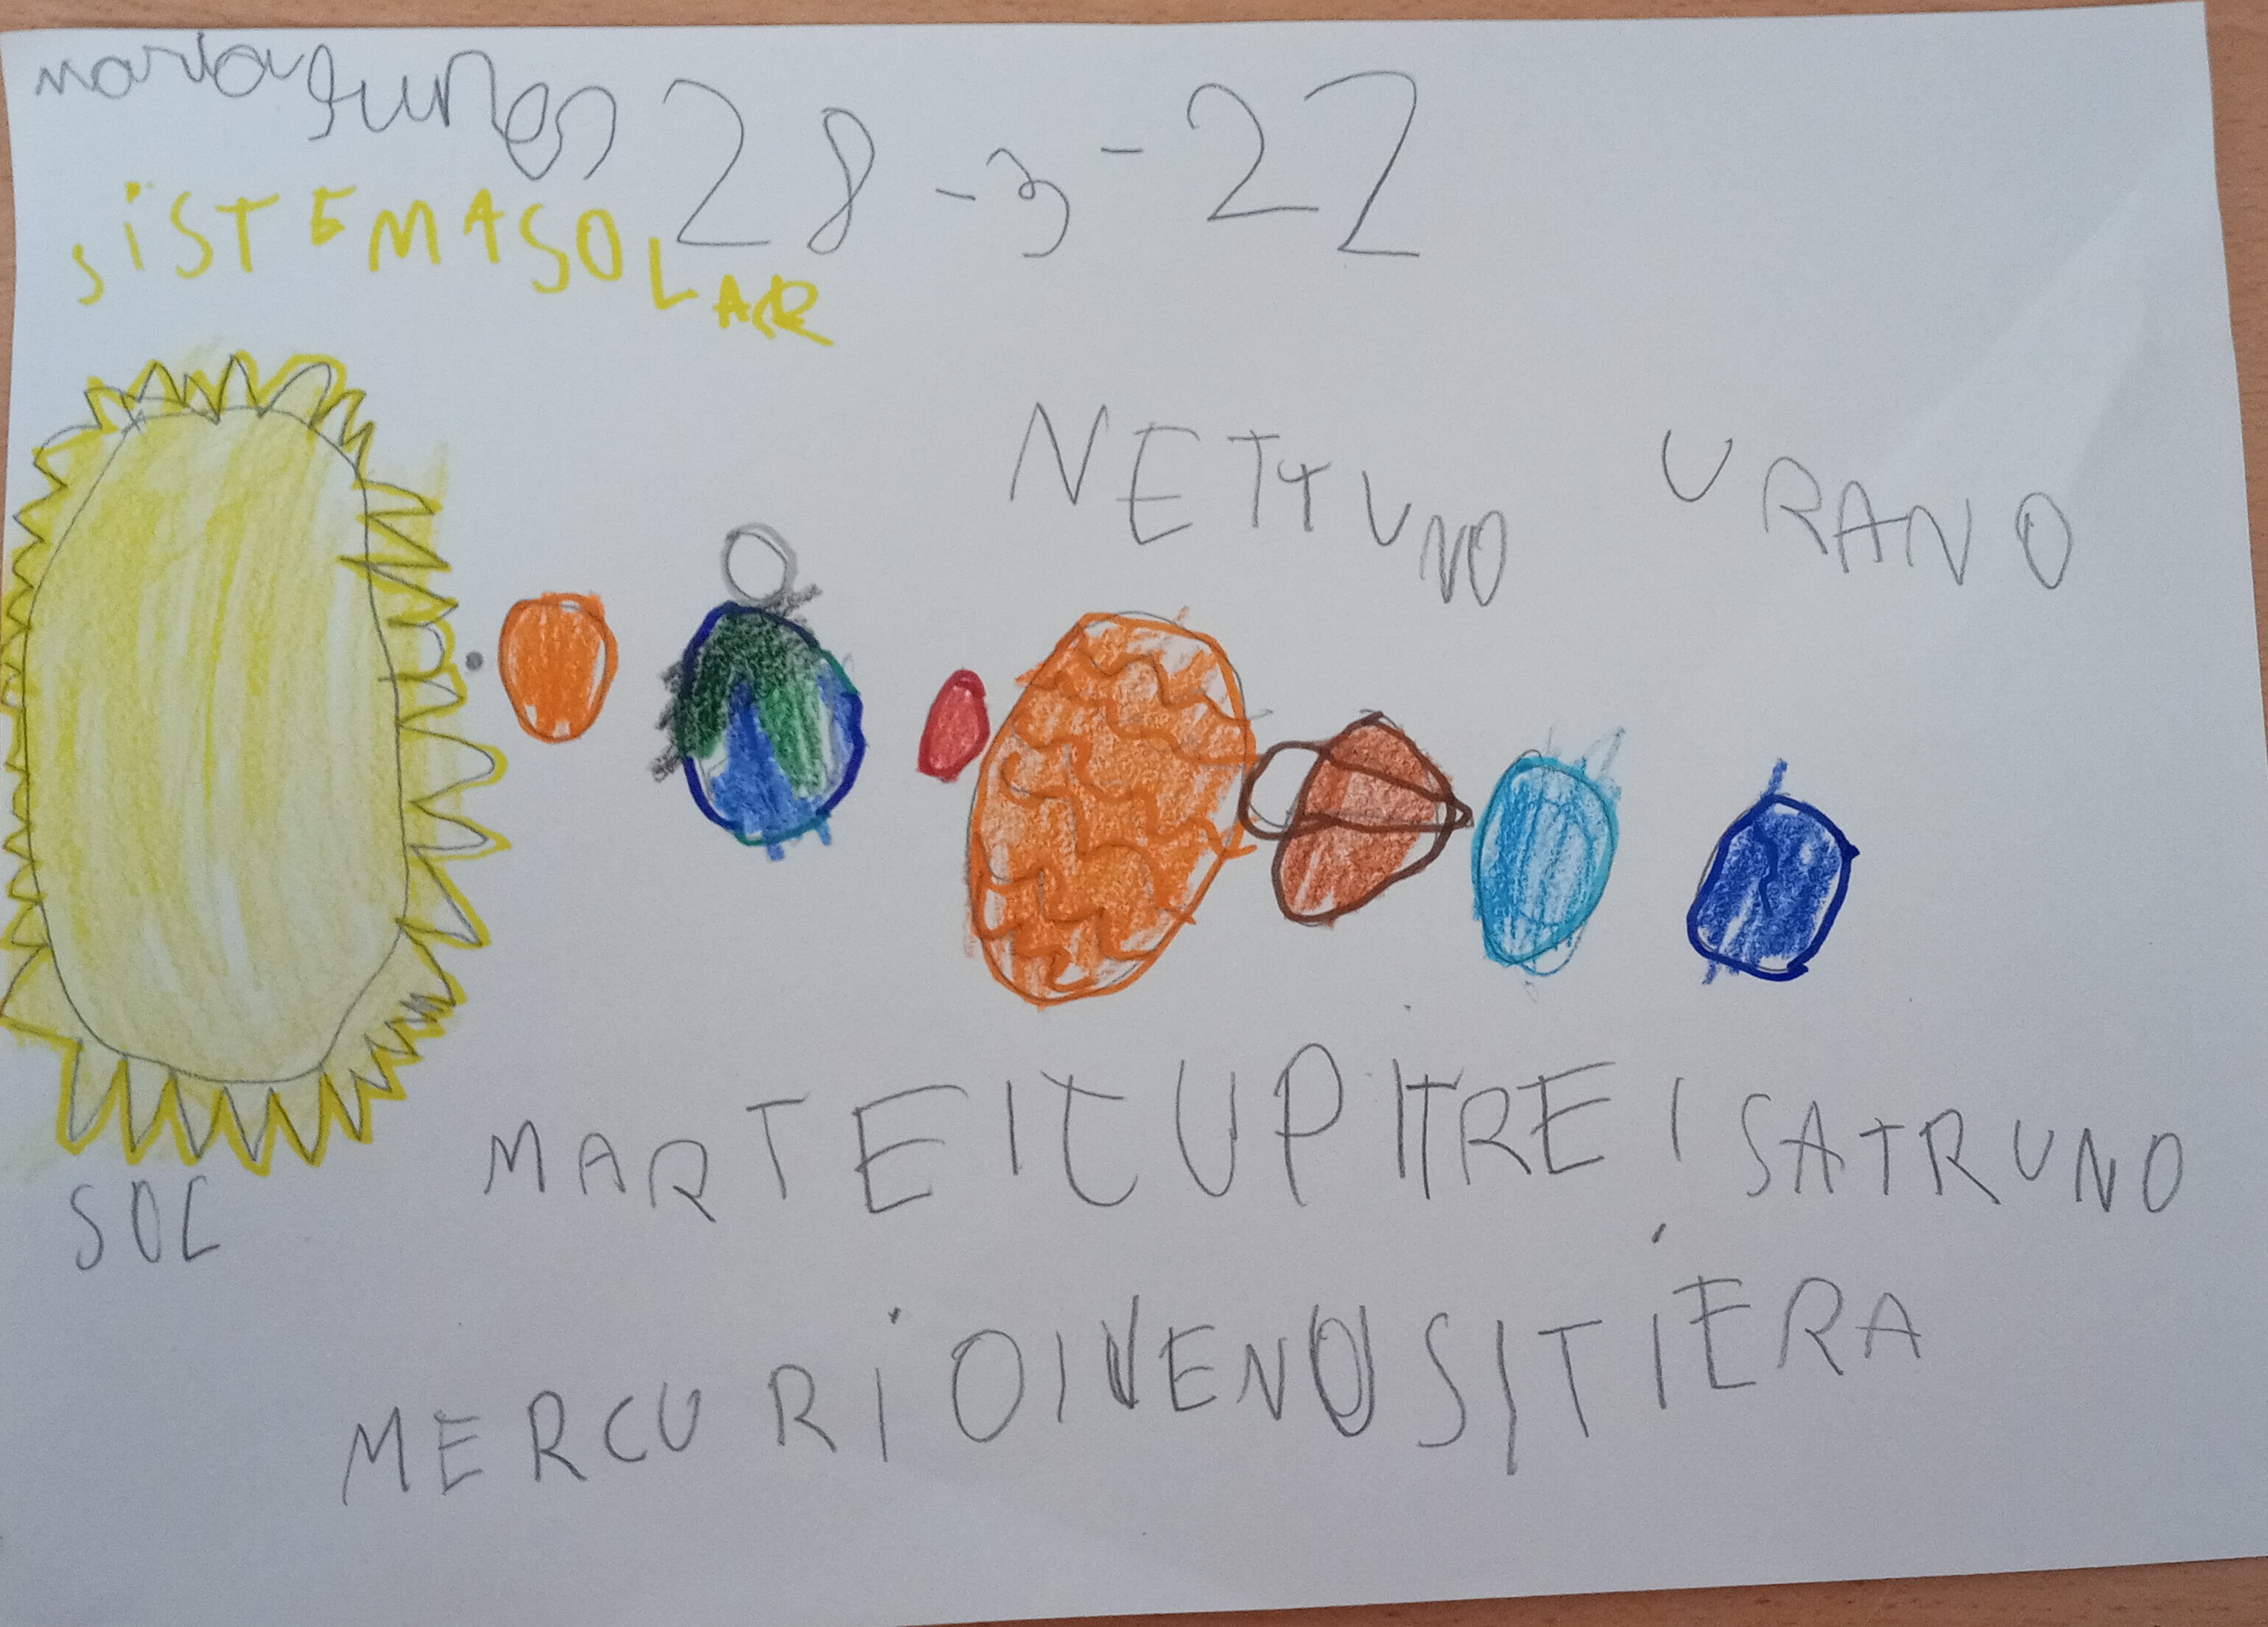 maria funes 28-3-22
SiSTEMASOLAR
NETTUNO URANO
MARTE ICUPITRE I SATRUNO
SOL
MERCURiO I VENUS I TiERA